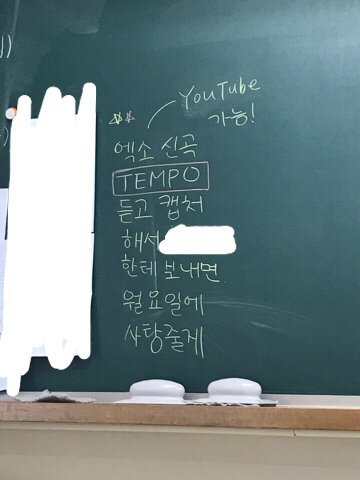 YouTube
가능!
엑소 신곡
TEMPO
듣고 캡처
해서
한테 보내면
월요일에
사탕줄게